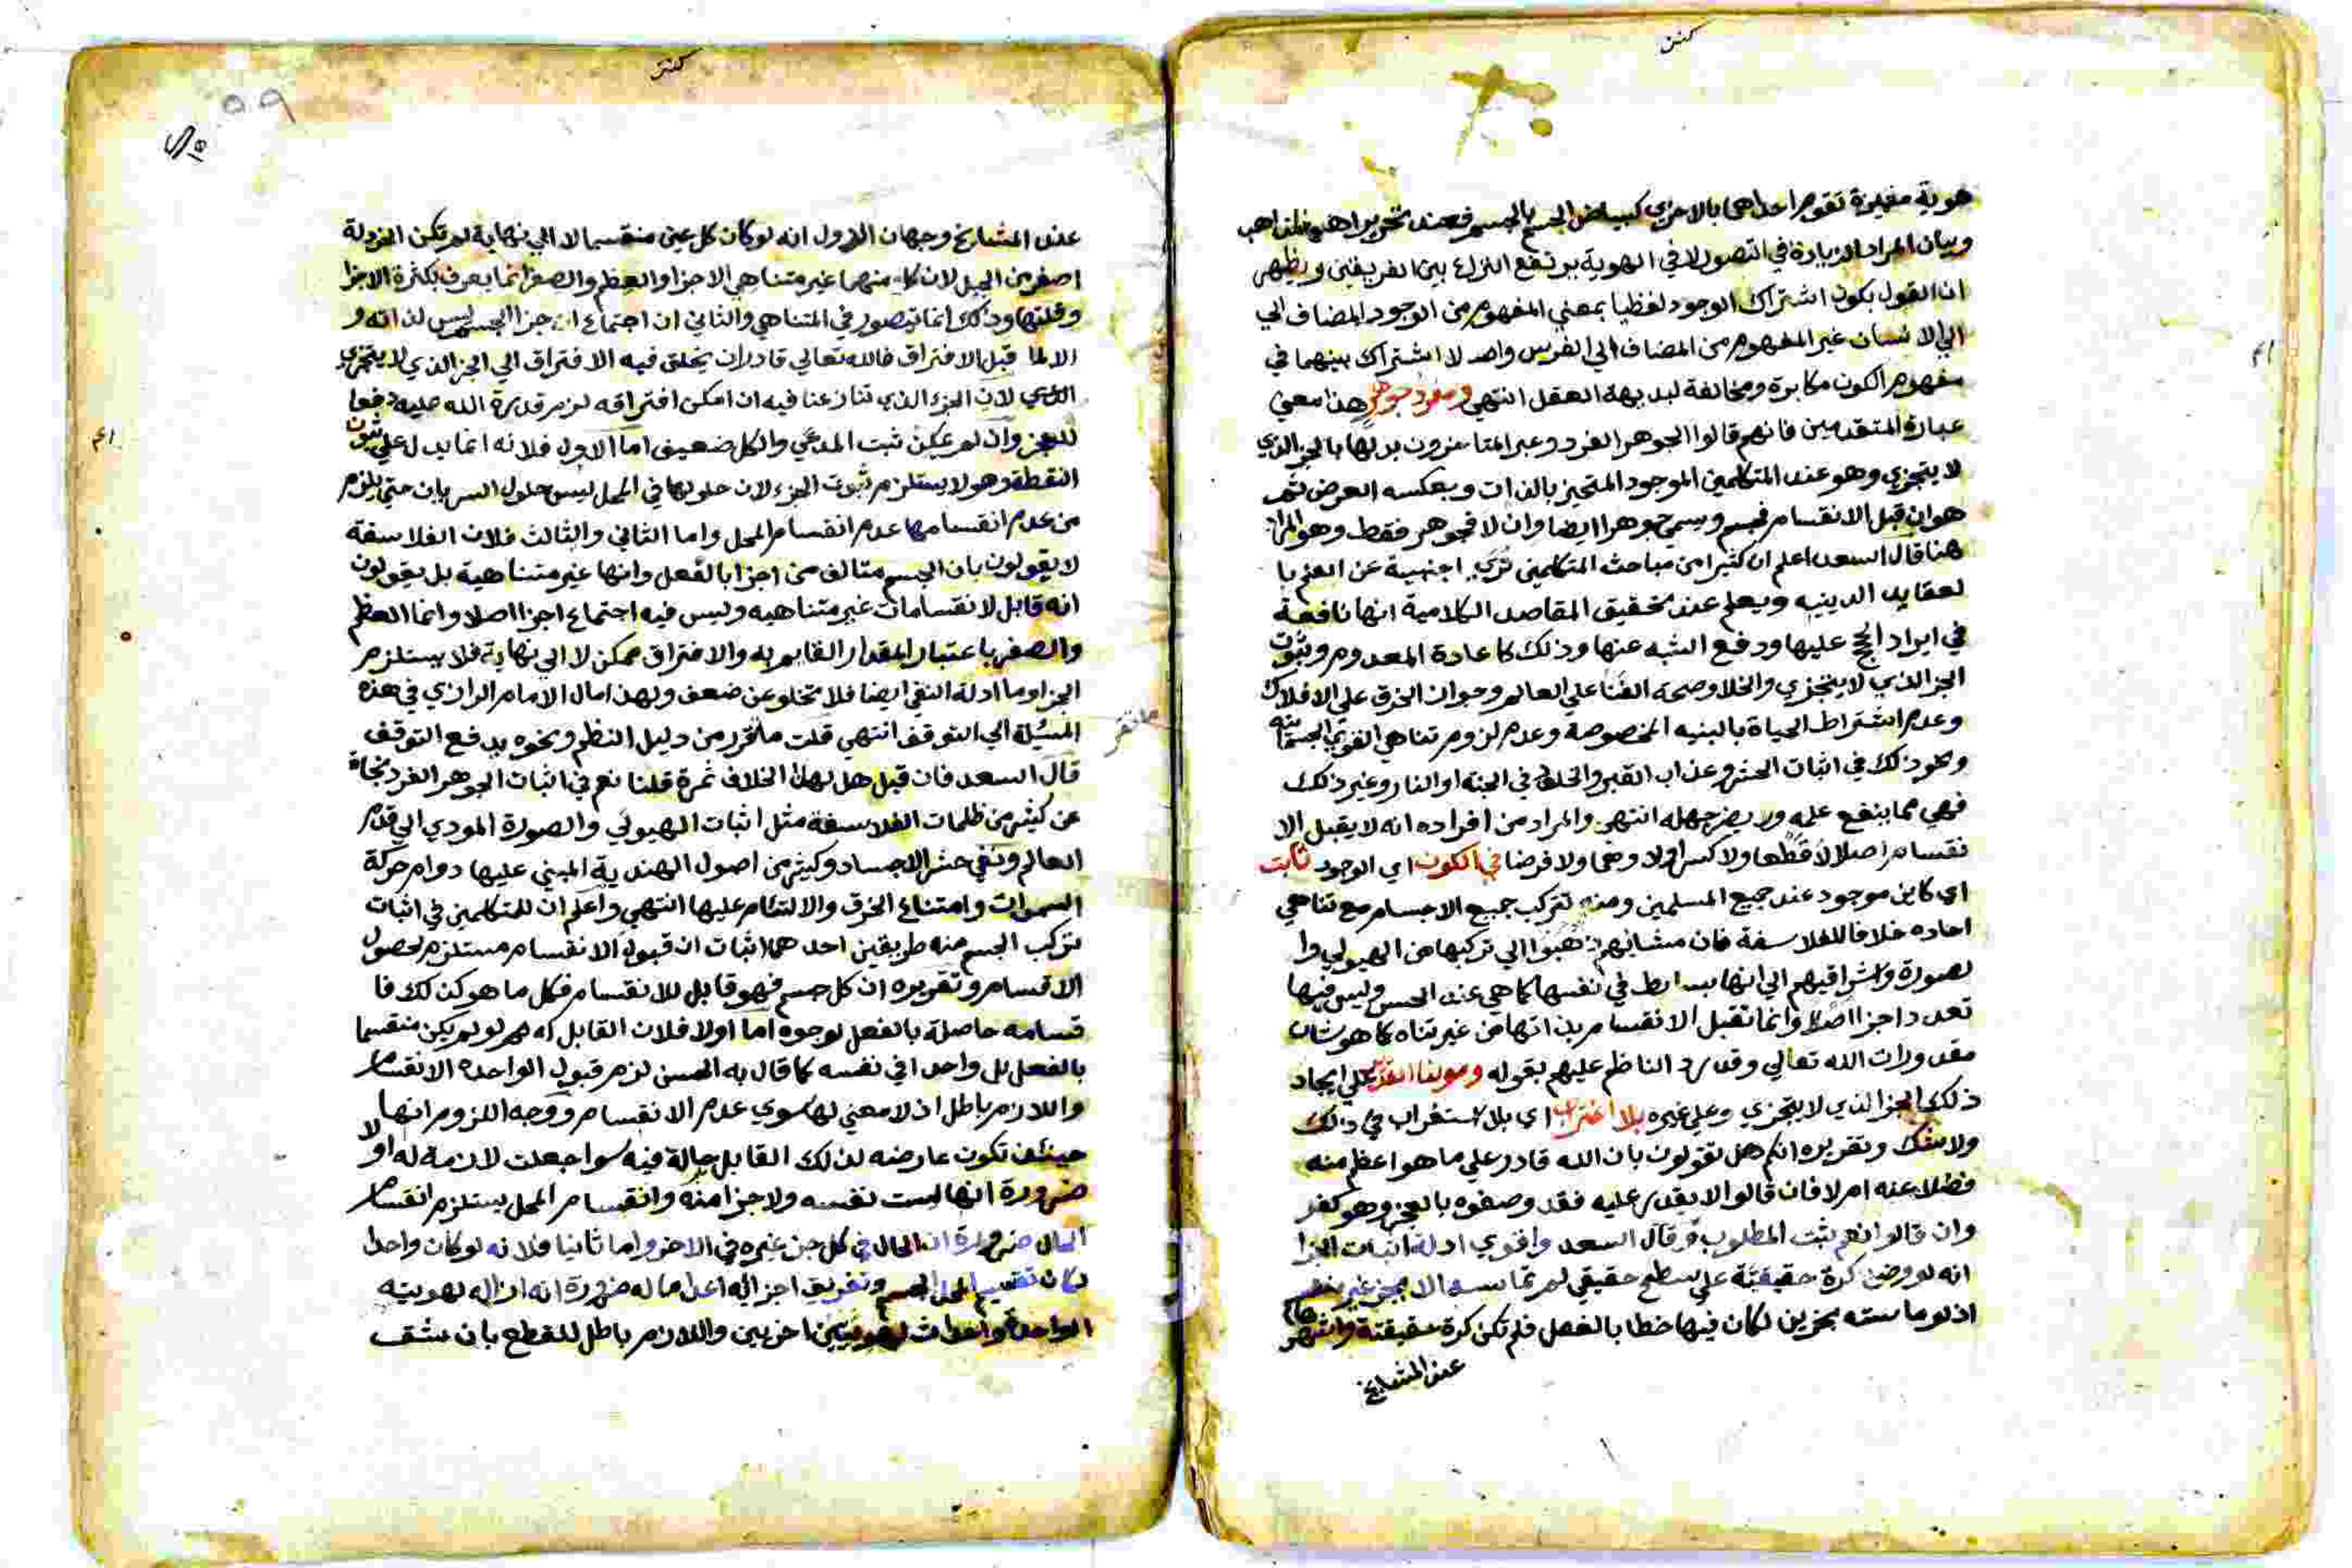 هوية مغيرة تقوم احداهما بالاخري كبياض الجسم بالجسم فعند تحرير المذاهب
وبيان المراد الزيادة في التصور لا في الهوية يرتفع النزاع بين الفريقين ويظهر
ان القول بكون اشتراك الوجود لفظيا بمعني المفهوم من الوجود المضاف الي
الي الانسان غير المفهوم من المضاف الي الفرس واحد لا اشتراك بينهما في
مفهوم الكون مكابرة ومخالفة لبديهة العقل انتهي ومفرد جوهر هذا معني
عبارة المتقدمين فانهم قالوا الجوهر الفرد وعبر المتاخرون بدلها بالجز الذي
لا يتجزي وهو عند المتكلمين الموجود المتحيز بالذات وبعكسه العرض ثم
هو ان قبل الانقسام فجسم ويسمي جوهرا ايضا وان لا فجوهر فقط وهو المراد
هنا قال السعد اعلم ان كثيرا من مباحث المتكلمين تري اجنبية عن العلم با
لعقايد الدينيه ويعلم عند تحقيق المقاصد الكلامية انها نافعة
في ايراد الحجج عليها ودفع الشبه عنها وذلك كاعادة المعدوم وثبوت
الجز الذي لا يتجزي والخلا وصحة الفنا علي العالم وجواز الخرق علي الافلاك
وعدم اشتراط الحياة بالبنيه المخصوصة وعدم لزوم تناهي القوي الجسمانيه
ونحو ذلك في اثبات الحشر وعذاب القبر والخلود في الجنه او النار وغير ذلك
فهي مما ينفع علمه ويضر جهله انتهي والمراد من افراده انه لا يقبل الا
نقسام اصلا لا قطعا ولا كسرا ولا وهما ولا فرضا في الكون اي الوجود ثابت
اي كاين موجود عند جميع المسلمين ومنه تتركب جميع الاجسام مع تناهي
احاده خلافا للفلاسفة فان مشائيهم ذهبوا الي تركيبها من الهيولي وا
لصورة واشراقيهم الي انها بسايط في نفسها كما هي عند الحس وليس فيها
تعدد اجزا اصلا وانما تقبل الانقسام بذاتها من غير تناه كما هو شان
مقدورات الله تعالي وقد رد الناظم عليهم بقوله ومولنا القدير علي ايجاد
ذلك الجز الذي لا يتجزي وعلي غيره بلا اغتراب اي بلا استغراب في ذلك
ولا شك وتقريره انكم هل تقولون بان الله قادر علي ما هو اعظم منه
فضلا عنه ام لا فان قالوا لا يقدر عليه فقد وصفوه بالعجز وهو كفر
وان قالوا نعم ثبت المطلوب وقال السعد واقوي ادلة اثبات الجزا
انه لو وضعت كرة حقيقية علي سطح حقيقي لم تماسه الا بجز غير منقسم
اذ لو ماسته بجزين لكان فيها خطا بالفعل فلم تكن كرة حقيقية واشهرها
عند المشايخ
عند المشايخ وجهان الاول انه لو كان كل عين منقسما لا الي نهاية لم تكن الخردلة
اصغر من الجبل لان كلا منهما غير متناهي الاجزا والعظم والصغر انما يعرف بكثرة الاجزا
وقلتها وذلك انما يتصور في المتناهي والثاني ان اجتماع اجزا الجسم ليس لذاته و
الا لما قبل الافتراق فالله تعالي قادر ان يخلق فيه الافتراق الي الجز الذي لا يتجزي
الذي لان الجزء الذي تنازعنا فيه ان امكن افتراقه لزم قدرة الله عليه دفعا
للعجز وان لم يمكن ثبت المدعي والكل ضعيف اما الاول فلانه انما يدل علي ثبوت
النقطة وهو لا يستلزم ثبوت الجزء لان حلولها في المحل ليس حلول السريان حتي يلزم
من عدم انقسامها عدم انقسام المحل واما الثاني والثالث فلان الفلاسفة
لا يقولون بان الجسم متالف من اجزا بالفعل وانها غير متناهية بل يقولون
انه قابل لانقسامات غير متناهيه وليس فيه اجتماع اجزا اصلا وانما العظم
والصغر باعتبار المقدار القايم به والافتراق ممكن لا الي نهاية فلا يستلزم
الجزا وما ادلة النفي ايضا فلا تخلو عن ضعف ولهذا مال الامام الرازي في هذه
المسئلة الي التوقف انتهي قلت ما تقرر من دليل النظم ونحوه يدفع التوقف
قال السعد فان قيل هل لهذا الخلاف ثمرة قلنا نعم في اثبات الجوهر الفرد نجاة
عن كثير من ظلمات الفلاسفة مثل اثبات الهيولي والصورة المودي الي قدم
العالم ونفي حشر الاجساد وكثير من اصول الهندية المبني عليها دوام حركة
السموات وامتناع الخرق والالتئام عليها انتهي واعلم ان للمتكلمين في اثبات
تركب الجسم منه طريقين احدهما اثبات ان قبول الانقسام مستلزم لحصول
الاقسام وتقريره ان كل جسم فهو قابل للانقسام فكل ما هو كذلك فا
قسامه حاصلة بالفعل لوجوه اما اولا فلان القابل له لو لم يكن منقسما
بالفعل بل واحدا في نفسه كما قال به الحسن لزم قبول الواحدة الانقسام
واللازم باطل اذ لا معني لها سوي عدم الانقسام ووجه اللزوم انها
حينئذ تكون عارضه لذلك القابل حالة فيه سوا جعلت لازمة له او لا
ضرورة انها ليست نفسه ولا جزا منه وانقسام المحل يستلزم انقسام
الحال ضرورة ان الحال في كل جز غيره في الاخر واما ثانيا فلانه لو كان واحدا
لكان تقسيم الجسم وتفريق اجزائه اعداما له ضرورة انه ازالة لهويته
الواحدة واحداث لهويتين اخريين واللازم باطل للقطع بان شق